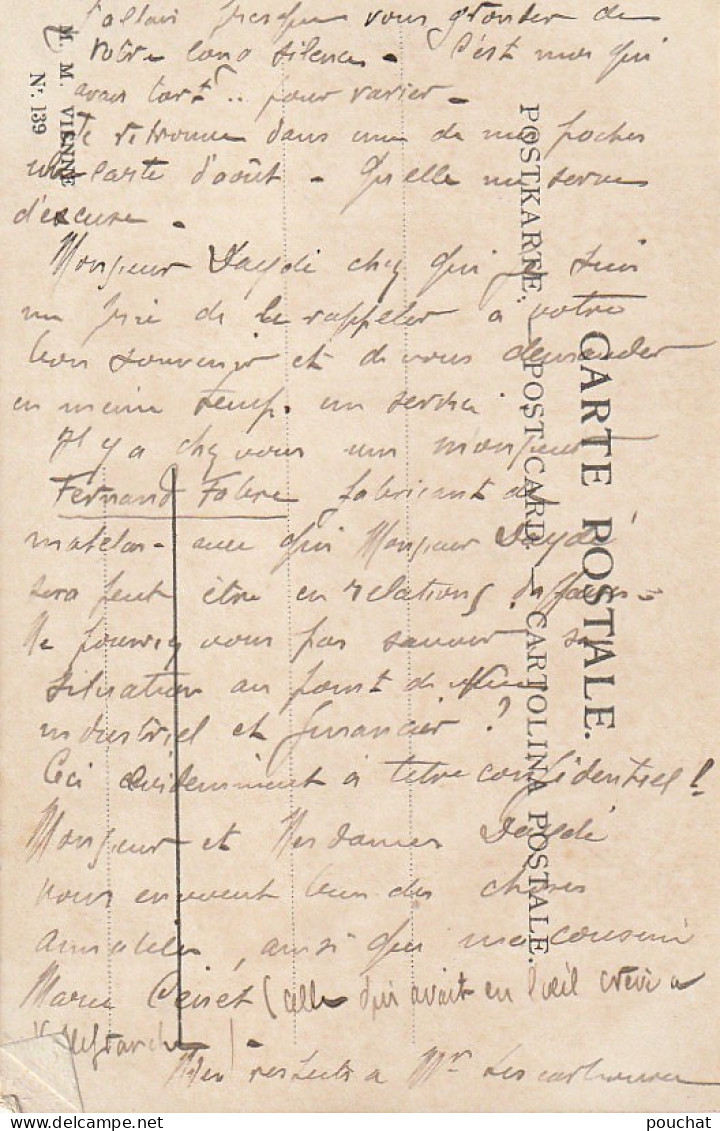 J'allais presque vous gronder de
votre long silence - C'est moi qui
avais tort .. pour varier -
Je retrouve dans une de mes poches
une carte d'août - Qu'elle me serve
d'excuse -
Monsieur Daydé chez qui je suis
me prie de le rappeler à votre
bon souvenir et de vous demander
en même temps un service.
Il y a chez vous un monsieur
Fernand Fabre fabricant de
matelas - avec qui Monsieur Daydé
sera peut être en relations d'affaires -
Ne pourriez vous pas savoir sa
situation au point de vue
industriel et financier ?
Ceci évidemment à titre confidentiel !
Monsieur et Mesdames Daydé
vous envoient bien des choses
aimables, ainsi que ma cousine
Marie (celle qui avait eu l'œil crevé à
Villefranche) -
Mes respects à Mr
M. M. VIENNE
Nr. 139
CARTE POSTALE.
POSTKARTE. — POST CARD. — CARTOLINA POSTALE.
pouchat
delcampe.net